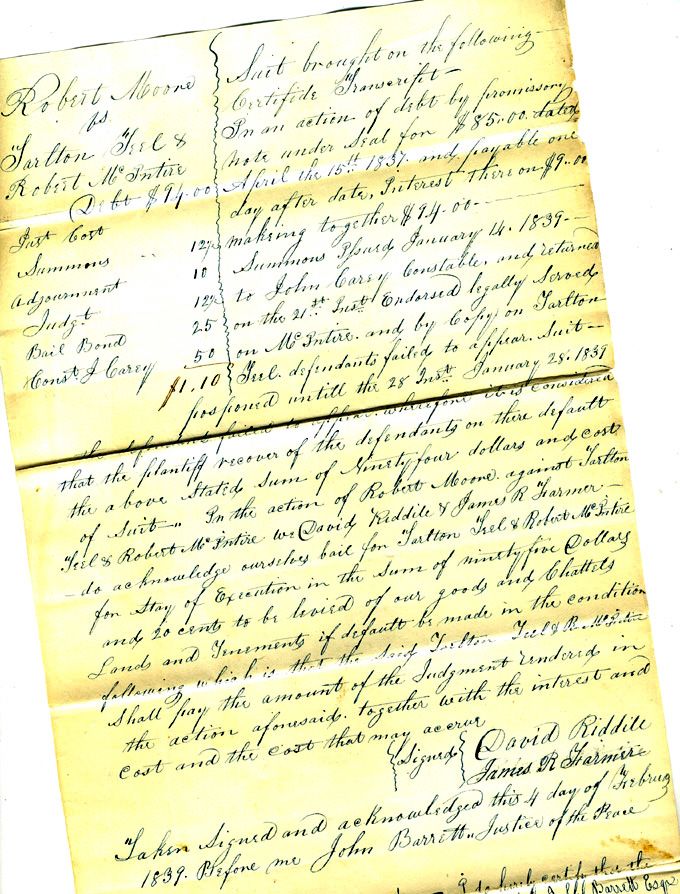 Robert Moore
vs
Tarlton Teel &
Robert McIntire
Debt $94.00
Just Cost
Summons 12½
Adjournment 10
Judgt 12½
Bail Bond 25
Const J Carey 50
$1.10
Suit brought on the following
Certifide Transcript
In an action of debt by promissory
note under seal for $85.00 dated
April the 15th 1837 and payable one
day after date, Interest there on $9.00
makeing together $94.00
Summons Issued January 14. 1839
to John Carey Constable, and returned
on the 21st Inst Endorsed legally Served
on McIntire. and by Copy on Tarlton
Teel. defendants failed to appear. Suit
posponed untill the 28 Inst January 28. 1839
the failed to appear. wherefore it is considered
that the plantiff recover of the defendants on there default
the above Stated Sum of Ninety four dollars and cost
of Suit " In the action of Robert Moore. against Tarlton
Teel & Robert McIntire we David Riddile & James R Farmer
do acknowledge ourselves bail for Tarlton Teel & Robert McIntire
for Stay of Execution in the Sum of ninety five Dollars
and 20 cents to be livied of our goods and Chattels
Lands and Tenements if default be made in the condition
following which is that the Said Tarlton Teel & R McIntire
Shall pay the amount of the Judgment rendered in
the action aforesaid. together with the interest and
cost and the cost that may accrue
Signed David Riddile
James R Farmer
Taken Signed and acknowledged this 4 day of
1839. Before me John Barrett Justice of the Peace
do hereby certify that the
Barrett Esqr